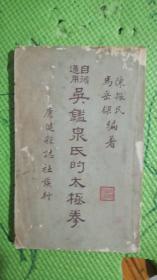 陳振民
馬岳樑 編著
自習適用
吳鑑泉氏的太極拳
康健雜誌社發行